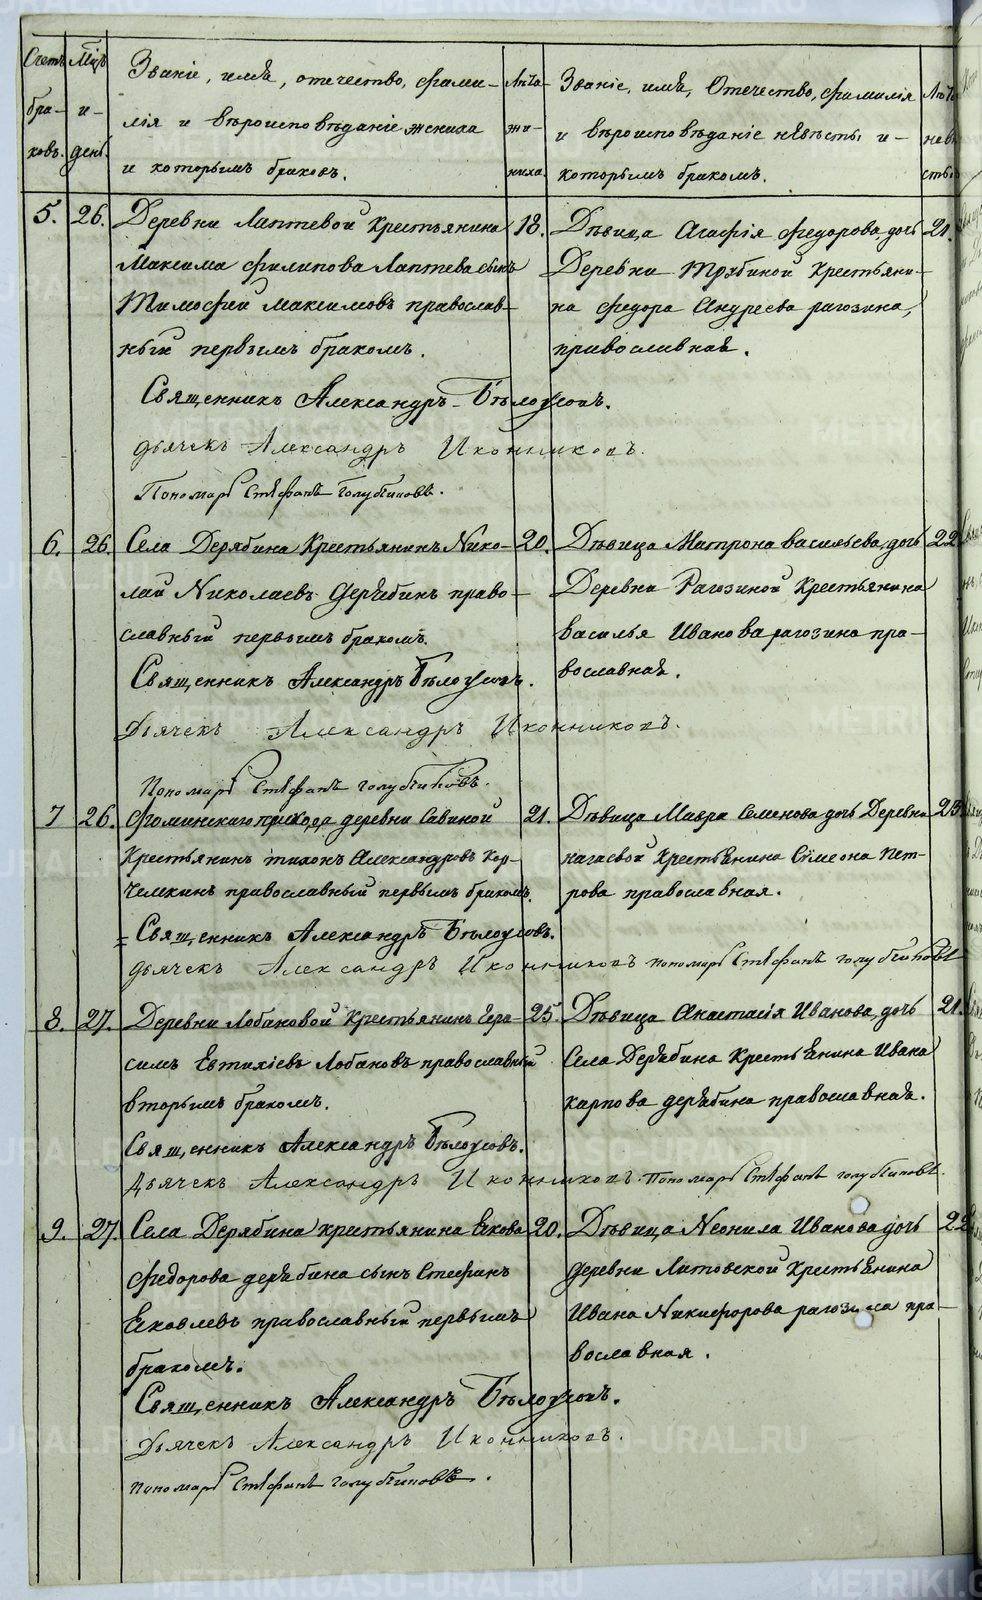 METRIKI.GASU-URAL.RU
Счетъ бра-ковъ.
Мѣц. и- день.
Званіе, имѣ, отечество, фами-
лія и вѣроисповѣданіе жениха
и которымъ бракомъ.
Лѣта жи-ниха.
Званіе, имѣ, Отечество, фамилія
и вѣроисповѣданіе нѣвѣсты и-
которымъ бракомъ.
5. 26. Деревни Лаптевой Крестьянина 18.
Максима Филипова Лаптева сынъ
Тимофей Максимовъ православ-
ный первымъ бракомъ.
Дѣвица Агафія Федорова дочь 21.
Деревни Трубиной Крестьяни-
на Федора Андреева рагозина,
православная.
Священникъ Александръ Бѣлоусовъ.
дьячекъ Александръ Иконниковъ.
Пономарь Стефанъ Голубчиковъ.
6. 26. Села Дерябина Крестьянинъ Нико- 20.
лай Николаевъ Дерябинъ право-
славный первымъ бракомъ.
Дѣвица Матрона васильева дочь 22
Деревни Рагозиной Крестьянина
василья Иванова рагозина пра-
вославная.
Священникъ Александръ Бѣлоусовъ.
Дьячекъ Александръ Иконниковъ.
Пономарь Стефанъ голубчиковъ.
7 26. Фоминскаго прихода деревни Савиной 21.
Крестьянинъ тихонъ Александровъ Кор-
челкинъ православный первымъ бракомъ.
Дѣвица Мавра Семенова дочь Деревни 23
нагаевой Крестьянина Симеона Пет-
рова православная.
Священникъ Александръ Бѣлоусовъ.
дьячекъ Александръ Иконниковъ пономарь Стефанъ голубчиковъ
8. 27. Деревни Лобановой Крестьянинъ Гера- 25.
симъ Евтихіевъ Лобановъ православный
вторымъ бракомъ.
Дѣвица Анастасія Иванова дочь 21.
Села Дерябина Крестьянина Ивана
карпова дерябина православная.
Священникъ Александръ Бѣлоусовъ.
Дьячекъ Александръ Иконниковъ. Пономарь Стефанъ голубчиковъ.
9. 27. Села Дерябина крестьянина Якова 20.
Федорова дерябина сынъ Стефанъ
Яковлевъ православный первымъ
бракомъ.
Дѣвица Неонила Иванова дочь 22
деревни Литовской Крестьянина
Ивана Никифорова рагозина пра-
вославная.
Священникъ Александръ Бѣлоусовъ.
Дьячекъ Александръ Иконниковъ.
пономарь Стефанъ голубчиковъ.
METRIKI.GASU-URAL.RU